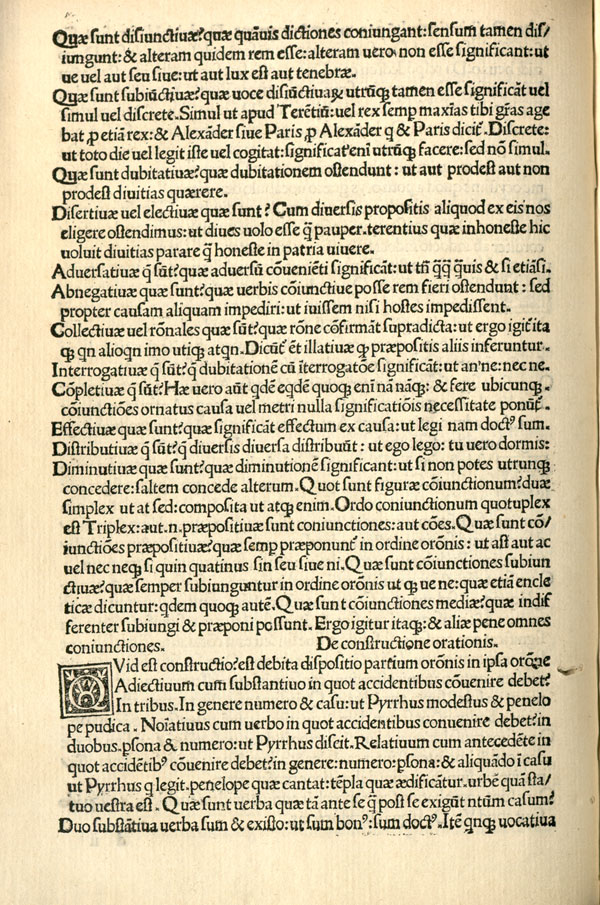 Quæ sunt disiunctiuæ?quæ quãuis dictiones coniungant:sensum tamen dis/
iungunt:& alteram quidem rem esse:alteram uero non esse significant:ut
ue uel aut seu siue:ut aut lux est aut tenebræ.
Quæ sunt subiũctiuæ?quæ uoce disiũctiuaꝝ utrũqꝫ tamen esse significãt uel
simul uel discrete.Simul ut apud Terẽtiũ:uel rex semp maxĩas tibi grãs age
bat ꝓ etiã rex:& Alexãder siue Paris ꝓ Alexãder q & Paris dicit̃.Discrete:
ut toto die uel legit iste uel cogitat:significat̃ eni utrũqꝫ facere:sed nõ simul.
Quæ sunt dubitatiuæ?quæ dubitationem ostendunt : ut aut prodest aut non
prodest diuitias quærere.
Disertiuæ uel electiuæ quæ sunt? Cum diuersis propositis aliquod ex eis nos
eligere ostendimus:ut diues uolo esse q̃ pauper.terentius quæ inhoneste hic
uoluit diuitias parare q̃ honeste in patria uiuere.
Aduersatiuæ q̃ sũt?quæ aduersũ cõueniẽti significãt:ut tñ q̃q̃ q̃uis & si etiãsi.
Abnegatiuæ quæ sunt?quæ uerbis cõiunctiue posse rem fieri ostendunt : sed
propter causam aliquam impediri:ut iuissem nisi hostes impedissent.
Collectiuæ uel rõnales quæ sũt?quæ rõne cõfirmãt supradicta:ut ergo igit̃ ita
qꝫ qn alioqn imo utiqꝫ atqn.Dicũt̃ ẽt illatiuæ q̃ præpositis aliis inferuntur.
Interrogatiuæ q̃ sũt?q̃ dubitationẽ cũ ĩterrogatõe significãt:ut an?ne:nec ne.
Cõpletiuæ q̃ sũt?Hæ uero aũt qdẽ eqdẽ quoqꝫ eni nã nãqꝫ: & fere ubicunqꝫ.
cõiunctiões ornatus causa uel metri nulla significatiõis necessitate ponũt̃.
Effectiuæ quæ sunt?quæ significãt effectum ex causa:ut legi nam doctꝰ sum.
Distributiuæ q̃ sũt?q̃ diuersis diuersa distribuũt : ut ego lego: tu uero dormis:
Diminutiuæ quæ sunt?quæ diminutionẽ significant:ut si non potes utrunqꝫ
concedere:saltem concede alterum.Quot sunt figuræ cõiunctionum?duæ
simplex ut at sed:composita ut atqꝫ enim.Ordo coniunctionum quotuplex
est Triplex:aut.n.præpositiuæ sunt coniunctiones:aut cões.Quæ sunt cõ/
iunctiões præpositiuæ?quæ semp præponunt̃ in ordine orõnis : ut ast aut ac
uel nec neqꝫ si quin quatinus sin seu siue ni.Quæ sunt cõiunctiones subiun
ctiuæ?quæ semper subiunguntur in ordine orõnis ut qꝫ ue ne:quæ etiã encle
ticæ dicuntur:qdem quoqꝫ autẽ.Quæ sunt cõiunctiones mediæ?quæ indif
ferenter subiungi & præponi possunt.Ergo igitur itaqꝫ:& aliæ pene omnes
coniunctiones. De constructione orationis.
QVid est constructio?est debita dispositio partium orõnis in ipsa orõne
Adiectiuum cum substantiuo in quot accidentibus cõuenire debet?
In tribus.In genere numero & casu:ut Pyrrhus modestus & penelo
pe pudica . Noĩatiuus cum uerbo in quot accidentibus conuenire debet?in
duobus.psona & numero:ut Pyrrhus discit.Relatiuum cum antecedẽte in
quot accidẽtibꝰ cõuenire debet?in genere:numero:psona:& aliquãdo ĩ casu
ut Pyrrhus q legit.penelope quæ cantat:tẽpla quæ ædificãtur.urbẽ quã sta/
tuo uestra est . Quæ sunt uerba quæ tã ante se q̃ post se exigũt ntũm casum?
Duo substãtiua uerba sum & existo:ut sum bonꝰ:sum doctꝰ.Itẽ qnqꝫ uocatiua